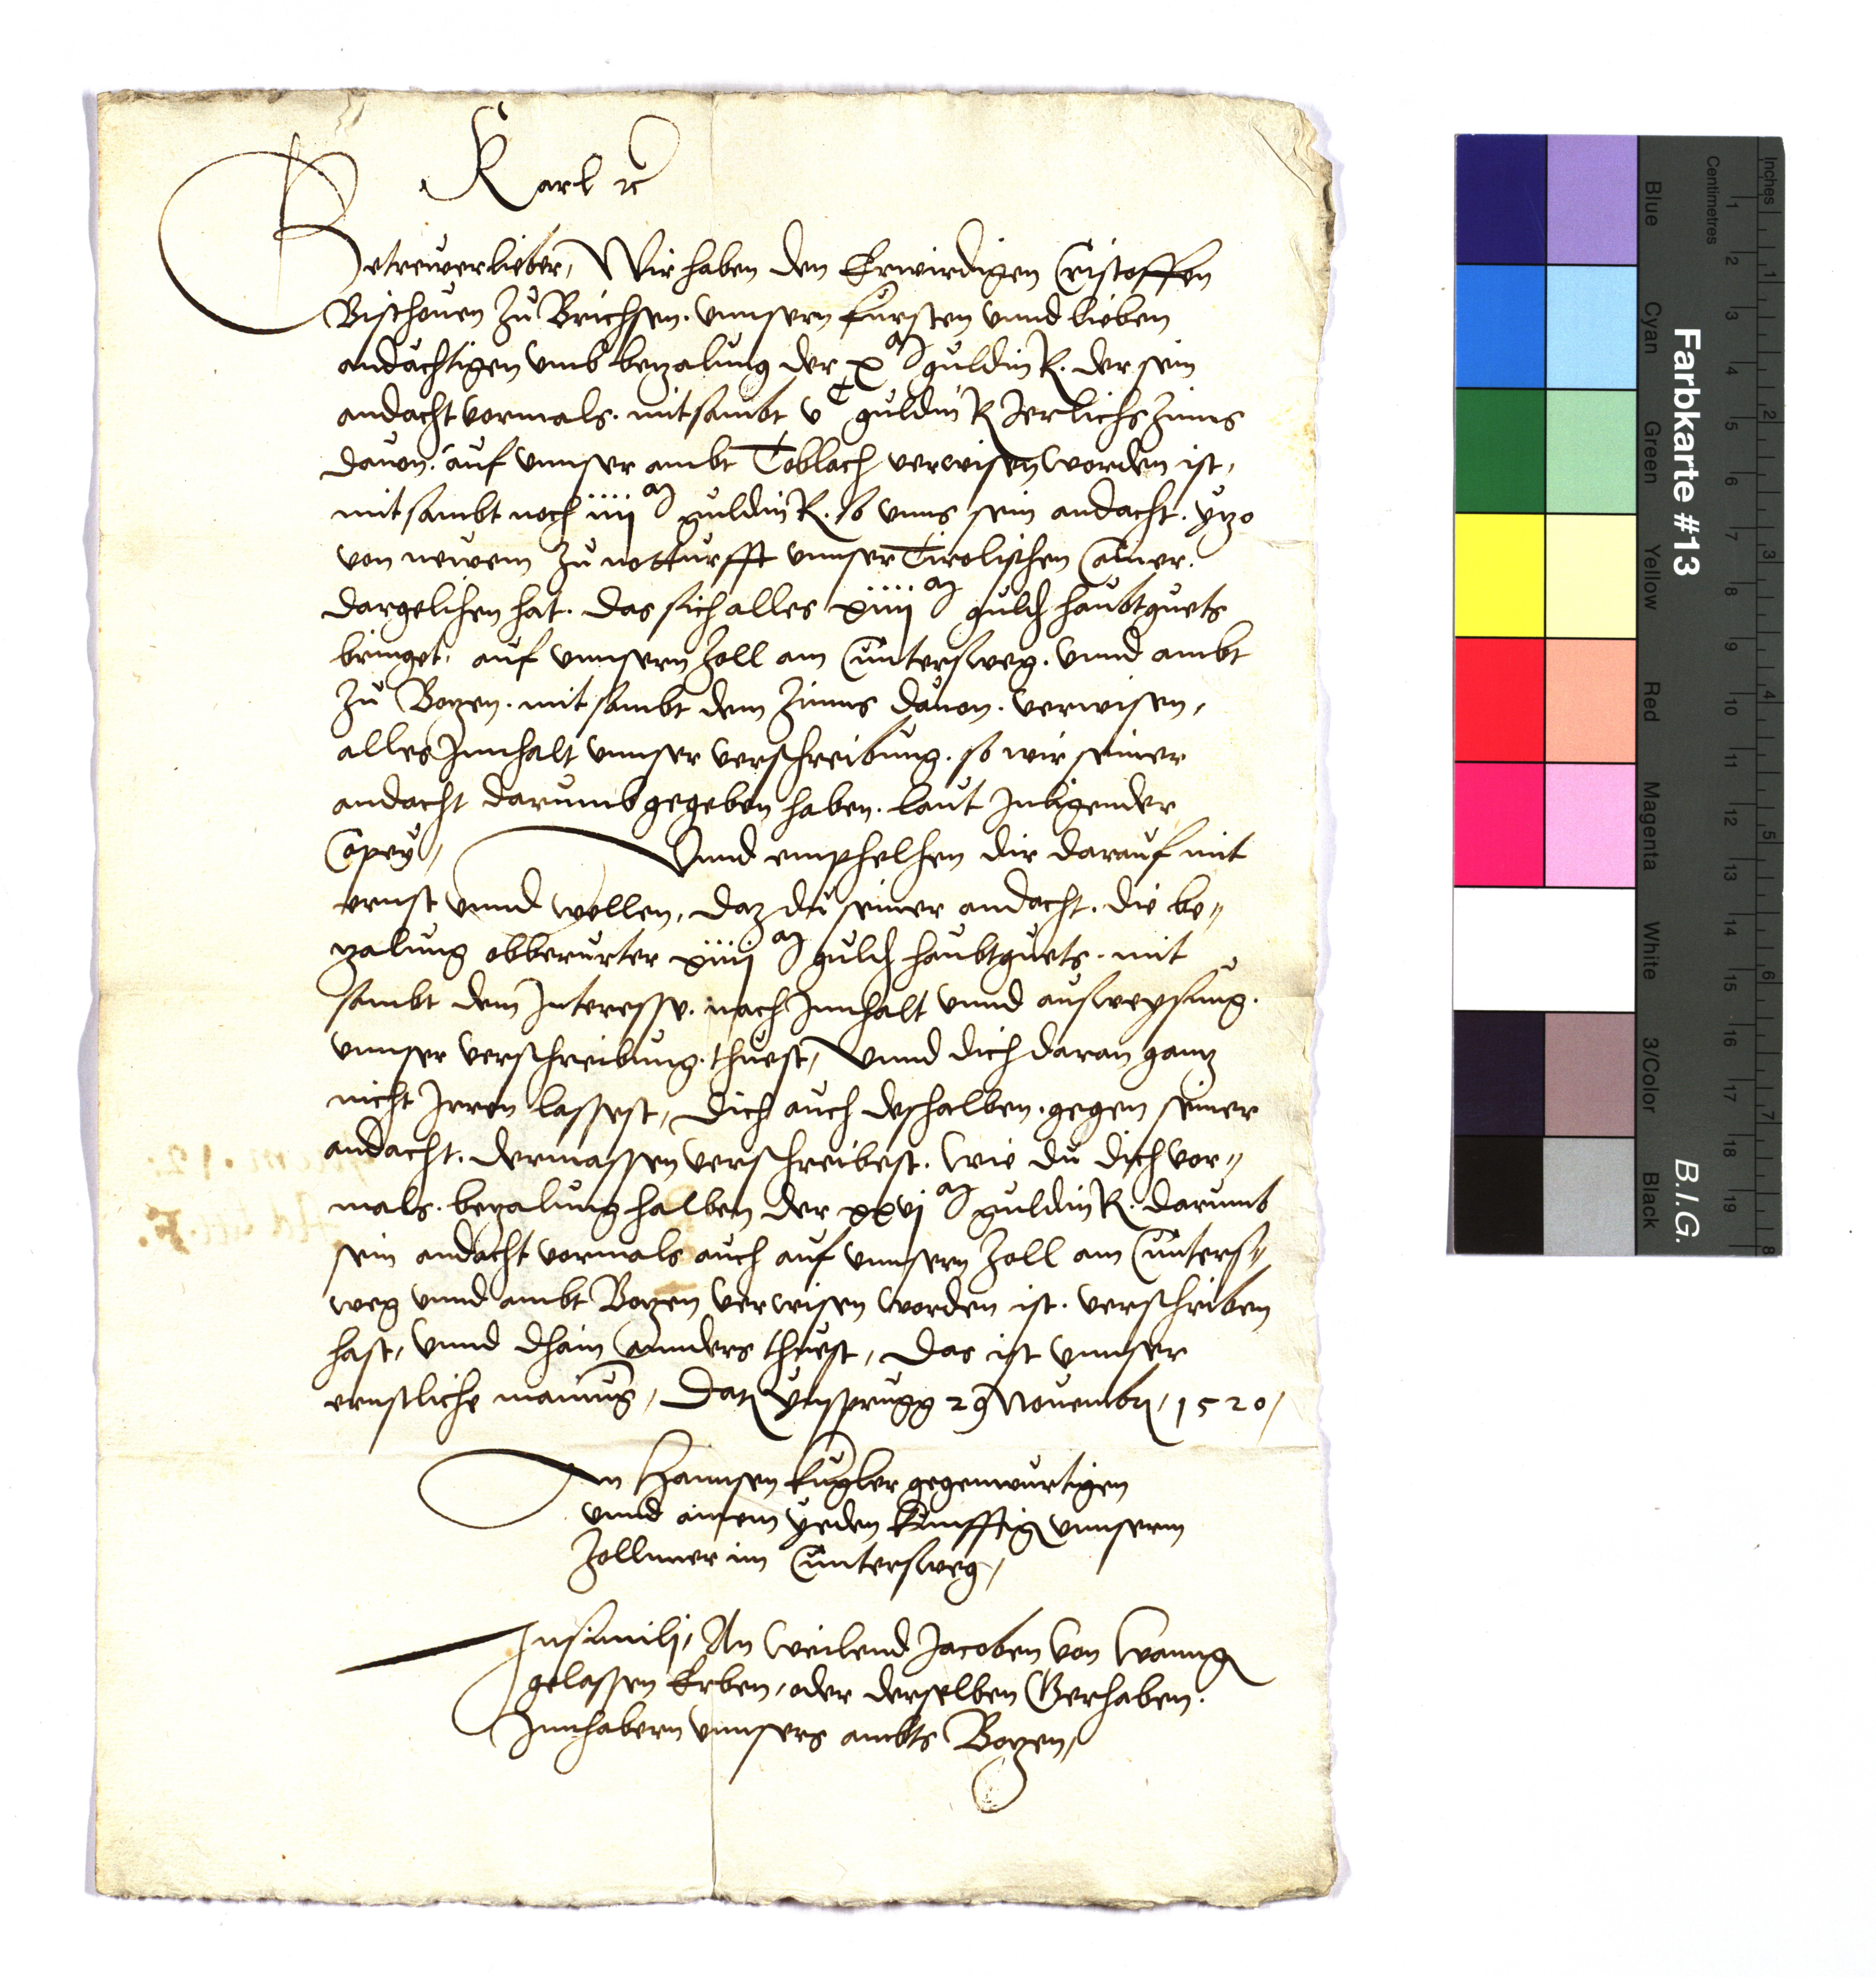 Karl ꝛc
Getrewer lieber, Wir haben den Erwirdigen Cristoffen
Bischouen zu Brichsen. vnnsern fursten vnnd lieben
andächtigen vmb bezalung der xᵐ guldin R. der sein
andacht vormals. mitsambt vᶜ guldin R Jerlichs Zinns
dauon. auf vnnser ambt Toblach verwisen worden ist,
mitsambt noch iiijᵐ guldin R. so vnns sein andacht. yzo
von newem zu notturfft vnnser Tirolischen Camer.
dargelihen hat. das sich alles xiiijᵐ guld haubtguets
bringet, auf vnnsern Zoll am Cuntersweg. vnnd ambt
zu Bozen. mitsambt dem Zinns dauon. verwisen,
alles Innhalt vnnser verschreibung. so wir seiner
andacht darumb gegeben haben. laut Inligender
Copey, Vnnd emphelhen dir darauf mit
ernst vnnd wellen, daz du seiner andacht. die be„
zalung obberurter xiiijᵐ guld haubtguets. mit
sambt dem Interesse. nach Innhalt vnnd ausweysung.
vnnser verschreibung. thuest, Vnnd dich daran ganz
nicht Irren lassest, dich auch deshalben. gegen seiner
andacht. dermassen verschreibest. wie du dich vor„
mals. bezalung halben der xxvjᵐ guldin R. darumb
sein andacht vormals auch auf vnnsern Zoll am Cunters„
weg vnnd ambt Bozen verwisen worden ist. verschriben
hast, vnnd dhain annders thuest, das ist vnnser
ernstliche mainung, Dat Ynsprugg 29 Nouembr, 1520,
An Hannsen kugler gegenwurtigen
vnnd ainem yeden kunfftig vnnserm
Zollner im Cuntersweg,
Insimilj, An weilend Jacoben von Wanng
gelassen Erben, oder derselben Gerhaben.
Innhabern vnnsers ambts Bozen,
Inches
Centimetres
1 2 3 4 5 6 7 8
1 2 3 4 5 6 7 8 9 10 11 12 13 14 15 16 17 18 19
Farbkarte #13
B.I.G.
Blue Cyan Green Yellow Red Magenta White 3/Color Black